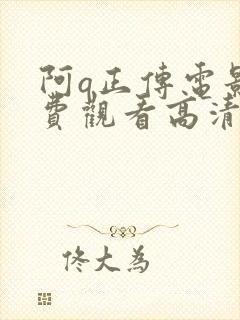 阿q正傳電影
費觀看高清
佟大為